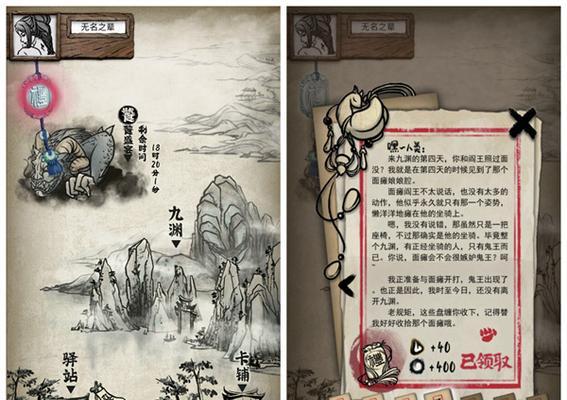 无名之辈
饕餮盛宴
剩余时间
18时20分1秒
九渊
驿站
卡铺
无名之辈
嘿一人类：
来九渊的第四天，你和阎王照过面
没？我就是在第四天的时候见到了那个
面瘫娘娘腔。
面瘫阎王不太说话，也没有太多的
动作，他似乎永久就只有那一个姿势，
懒洋洋地瘫在他的坐骑上。
嗯，我没有说错，那虽然只是一把
座椅，不过那确实是他的坐骑。毕竟整
个九渊，有正经坐骑的人，只有鬼王而
已。你说，面瘫会不会很嫉妒鬼王？呵
我正准备与面瘫开打，鬼王出现了
。也正是因此，我时至今日，还没有离
开九渊。
老规矩，这些盘缠你收下，记得替
我好好收拾那个面瘫哦。
+40
+400
已领取